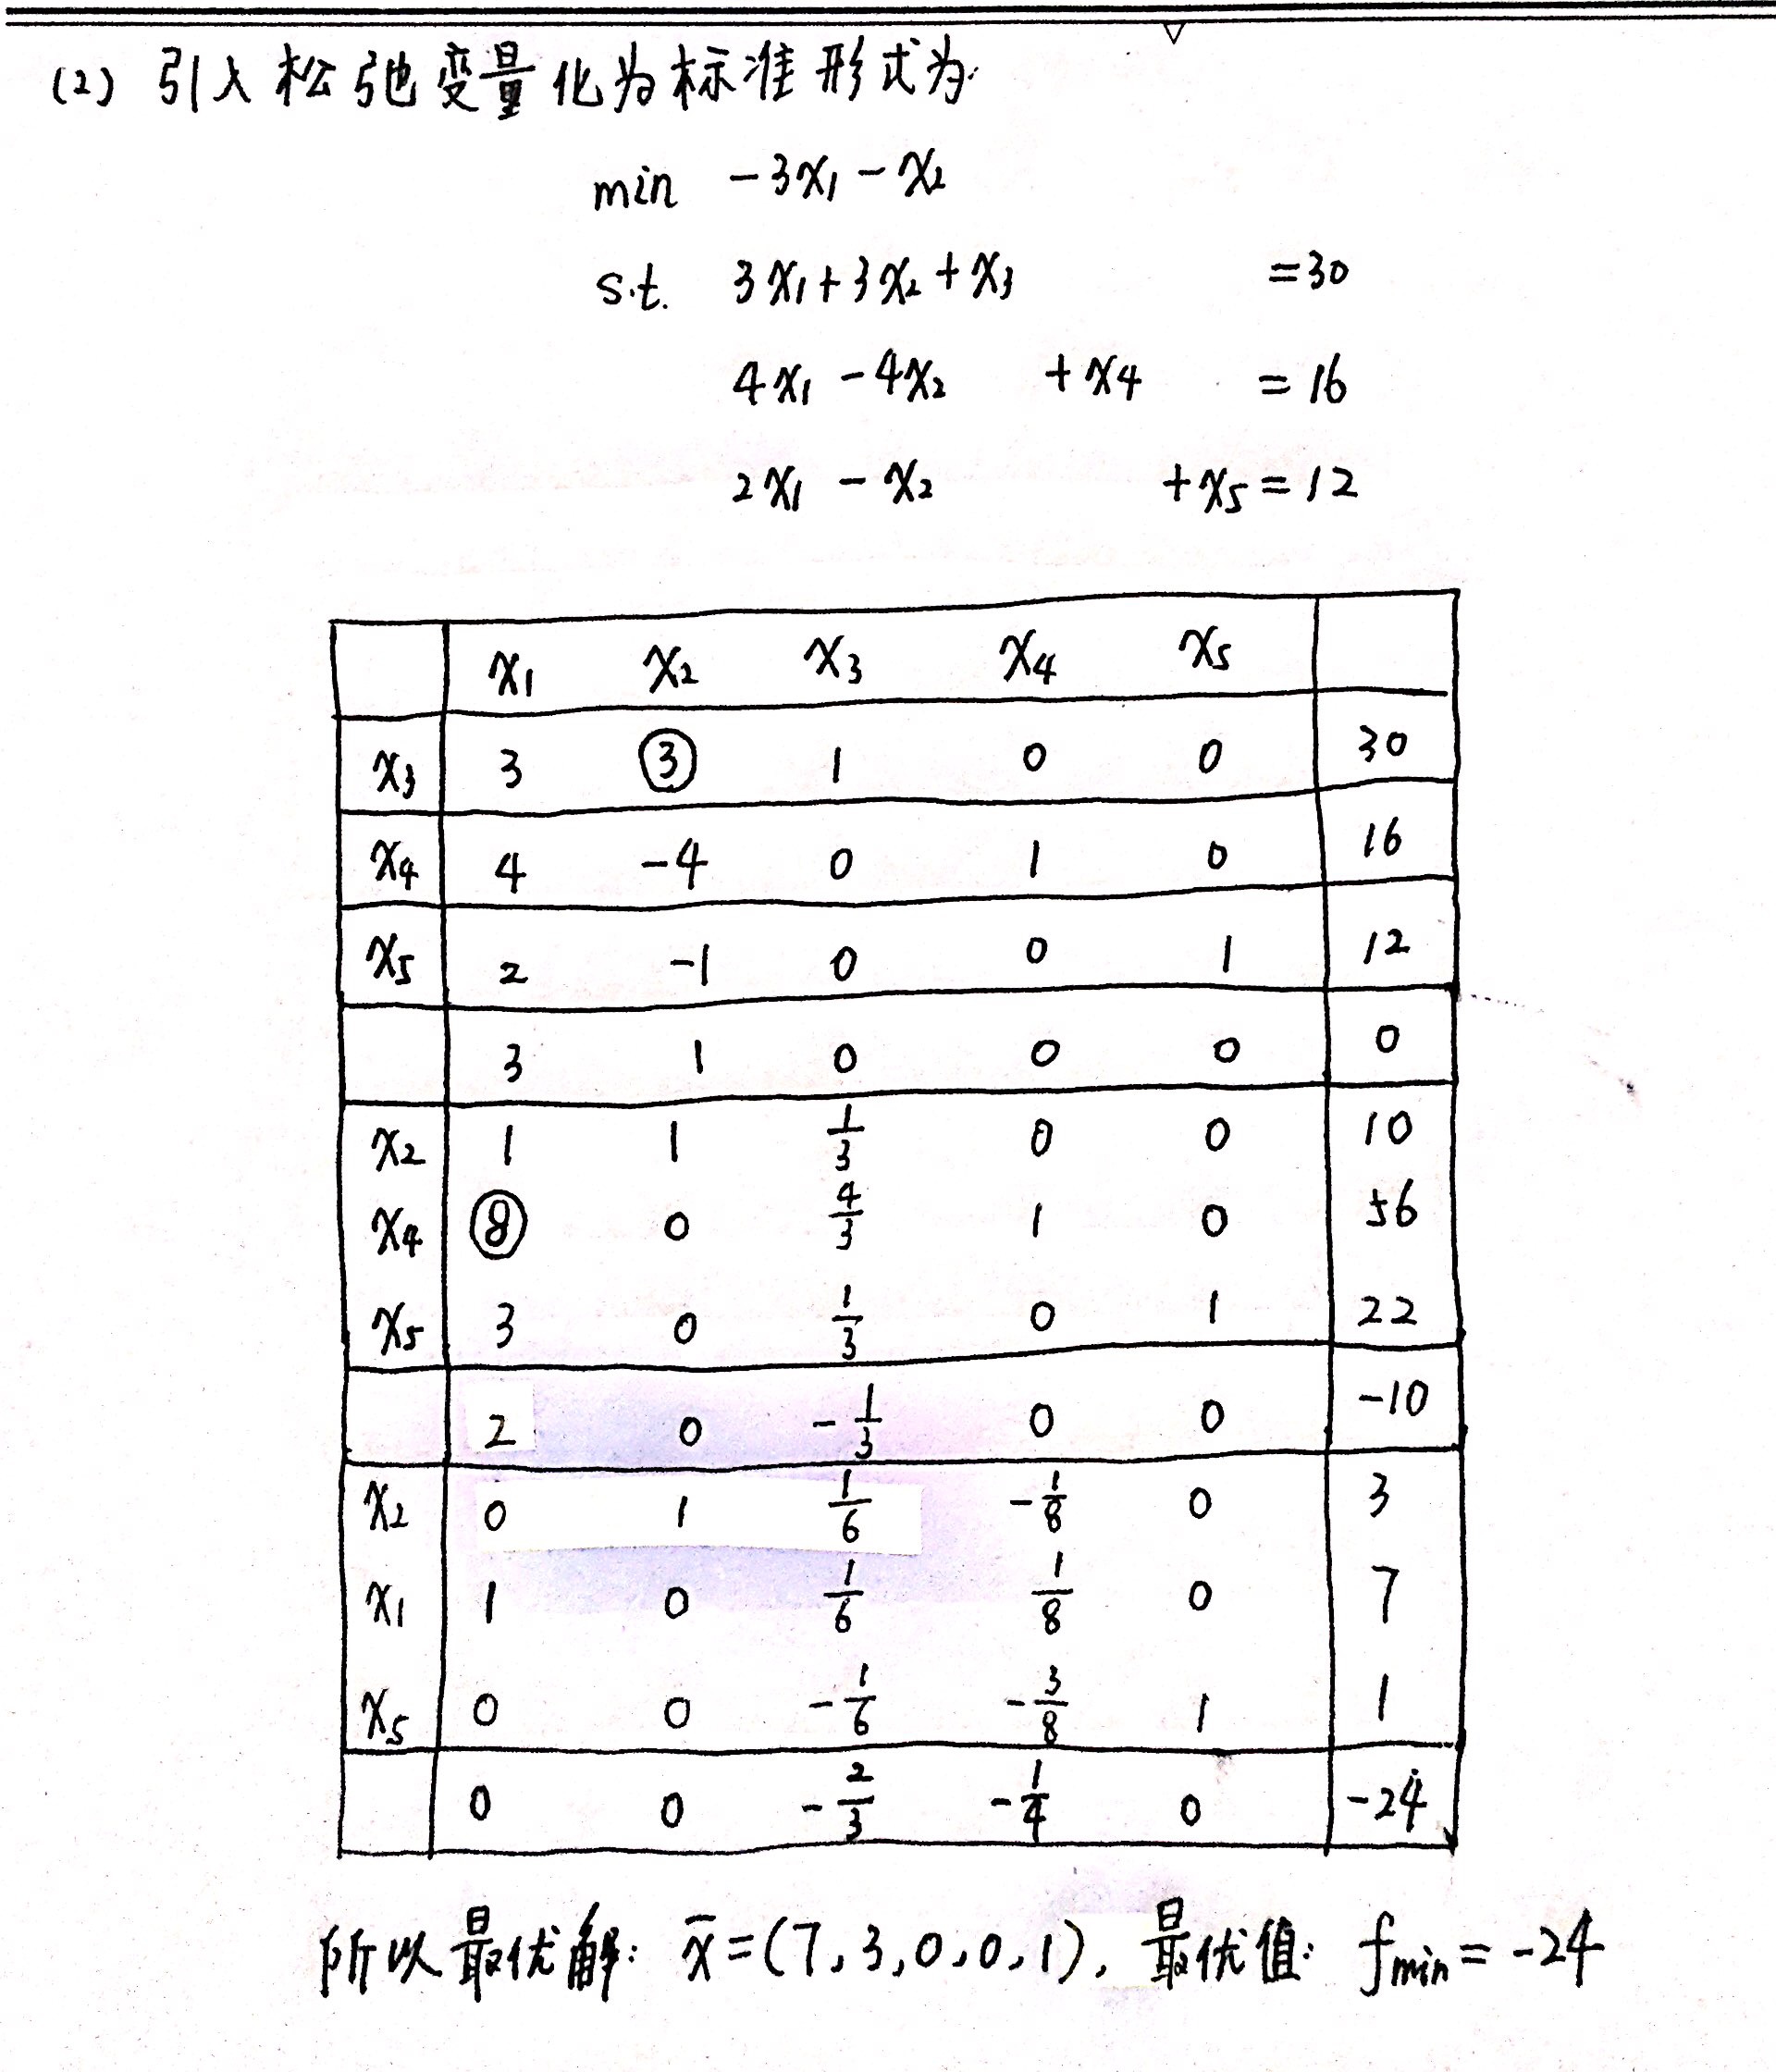 (2) 引入松弛变量化为标准形式为:
min -3x₁ - x₂
s.t. 3x₁ + 3x₂ + x₃ = 30
4x₁ - 4x₂ + x₄ = 16
2x₁ - x₂ + x₅ = 12
x₁ x₂ x₃ x₄ x₅
x₃ 3 ③ 1 0 0 30
x₄ 4 -4 0 1 0 16
x₅ 2 -1 0 0 1 12
3 1 0 0 0 0
x₂ 1 1 1/3 0 0 10
x₄ ⑧ 0 4/3 1 0 56
x₅ 3 0 1/3 0 1 22
2 0 -1/3 0 0 -10
x₂ 0 1 1/6 -1/8 0 3
x₁ 1 0 1/6 1/8 0 7
x₅ 0 0 -1/6 -3/8 1 1
0 0 -2/3 -1/4 0 -24
所以最优解: x̄ = (7, 3, 0, 0, 1), 最优值: fmin = -24